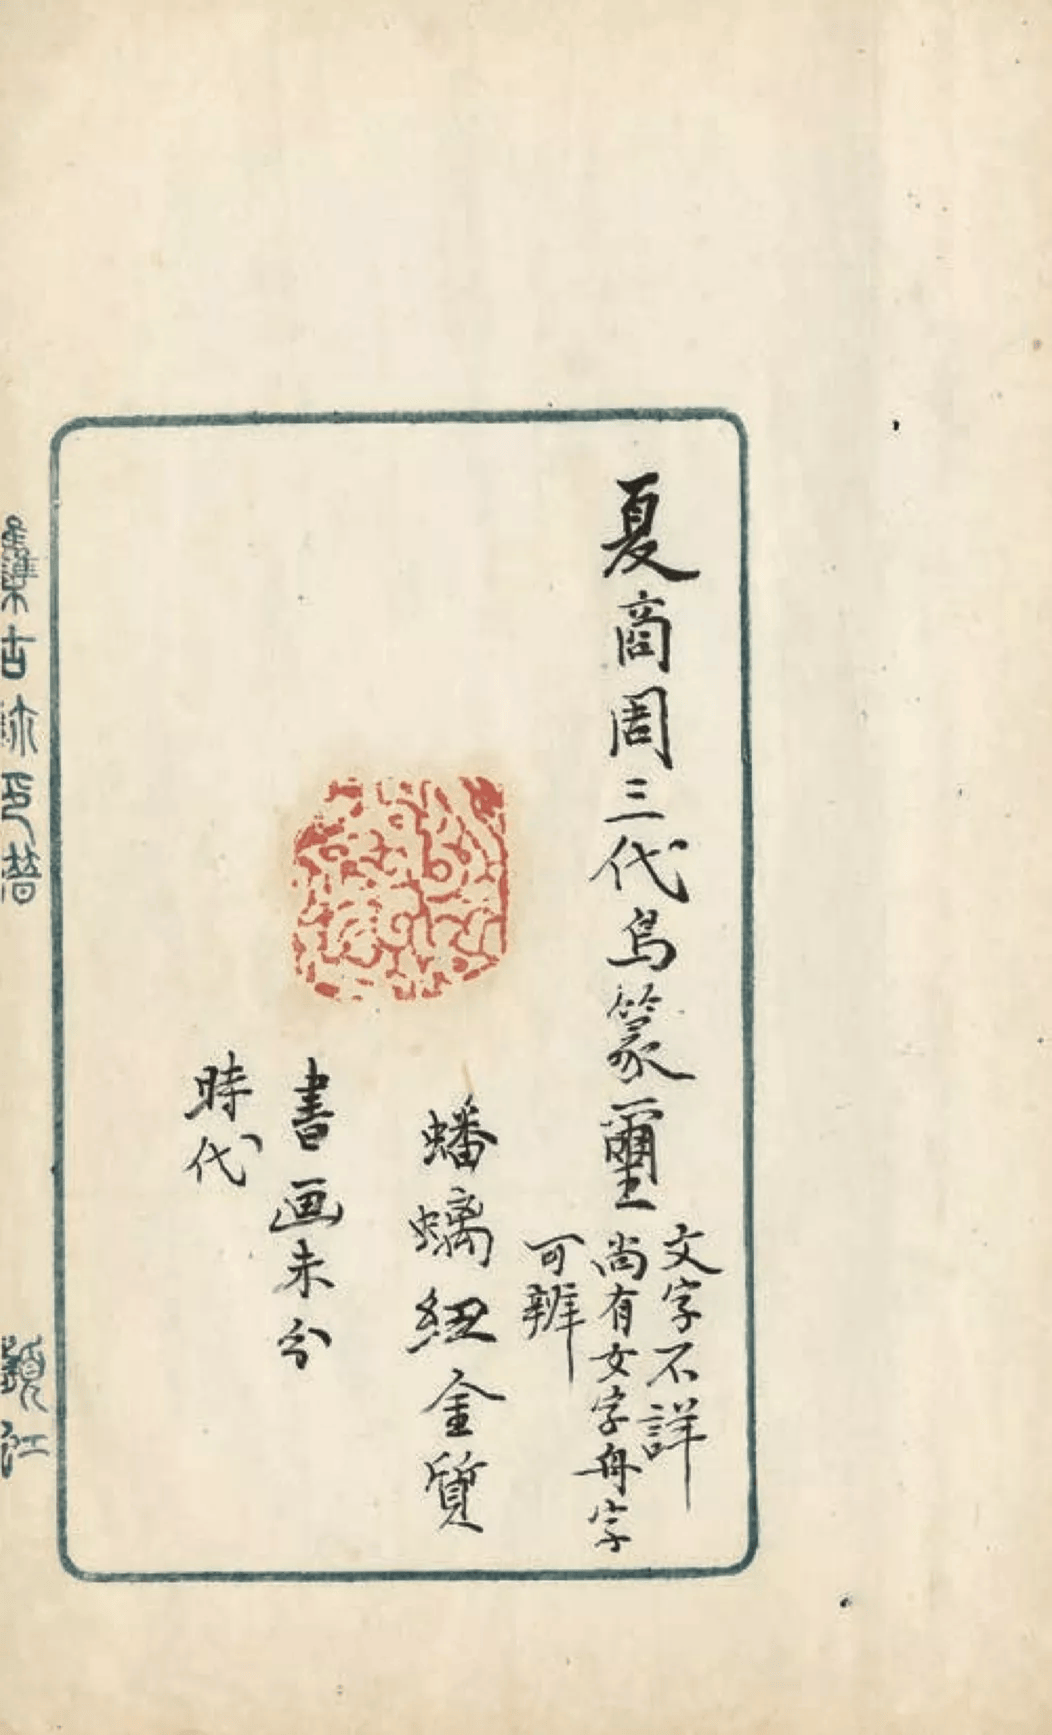 夏商周三代鳥篆璽
文字不詳
尚有文字舟字
可辨
蟠螭紐金質
書画未分
時代
集古
印譜
鎮江